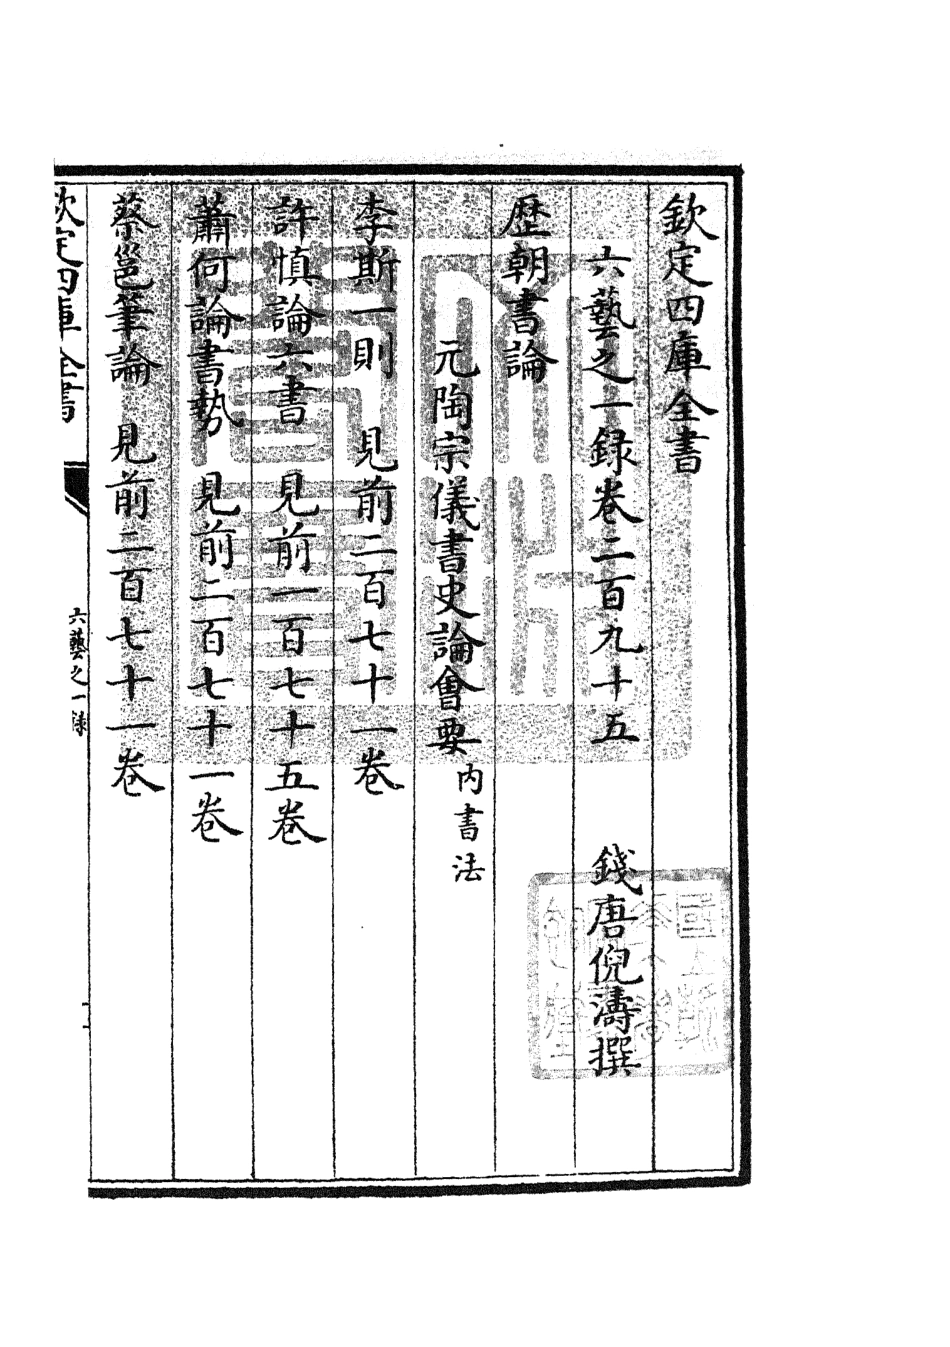 欽定四庫全書
六藝之一錄卷二百九十五　錢唐倪濤撰
歷朝書論
元陶宗儀書史論會要内書法
李斯一則　見前二百七十一卷
許慎論六書　見前一百七十五卷
蕭何論書勢　見前二百七十一卷
蔡邕筆論　見前二百七十一卷
欽定四庫全書
六藝之一録